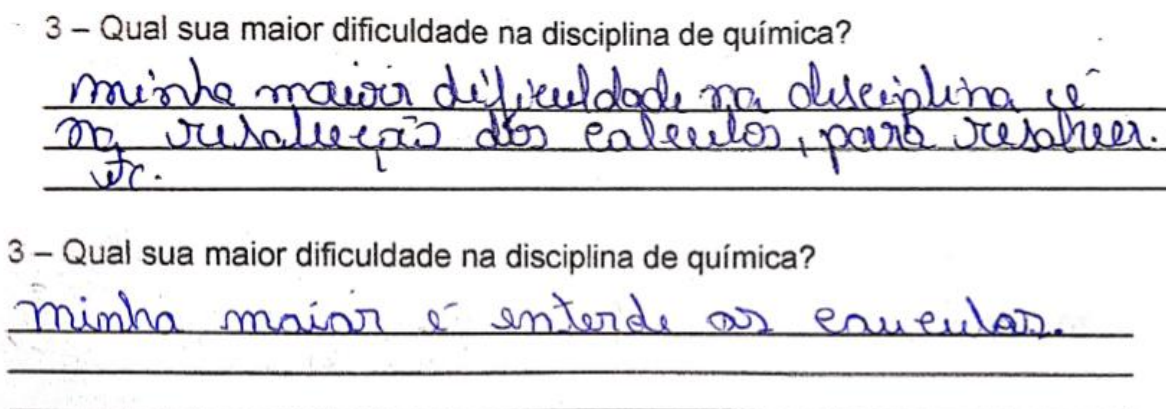 3 – Qual sua maior dificuldade na disciplina de química?
minha maior dificuldade na disciplina é
na resolução dos calculos, para resolver.
etc.
3 – Qual sua maior dificuldade na disciplina de química?
minha maior é entende os cauculos.